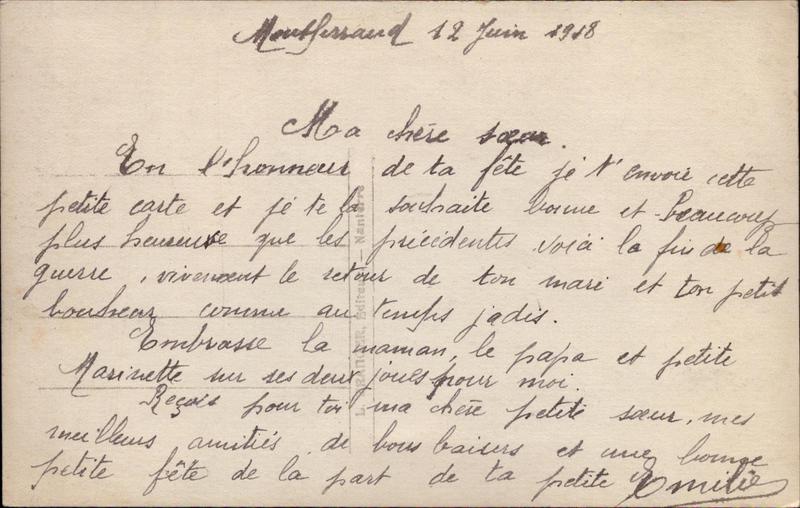 Montferrand 12 Juin 1918
Ma chère sœur.
En l'honneur de ta fête je t'envoie cette
petite carte et je te la souhaite bonne et beaucoup
plus heureuse que les précédentes voici la fin de la
guerre, vivement le retour de ton mari et ton petit
bonheur comme au temps jadis.
Embrasse la maman, le papa et petite
Marinette sur ses deux joues pour moi.
Reçois pour toi ma chère petite sœur, mes
meilleurs amitiés, de bons baisers et une bonne
petite fête de la part de ta petite Emilie
Editeur — Nanterre